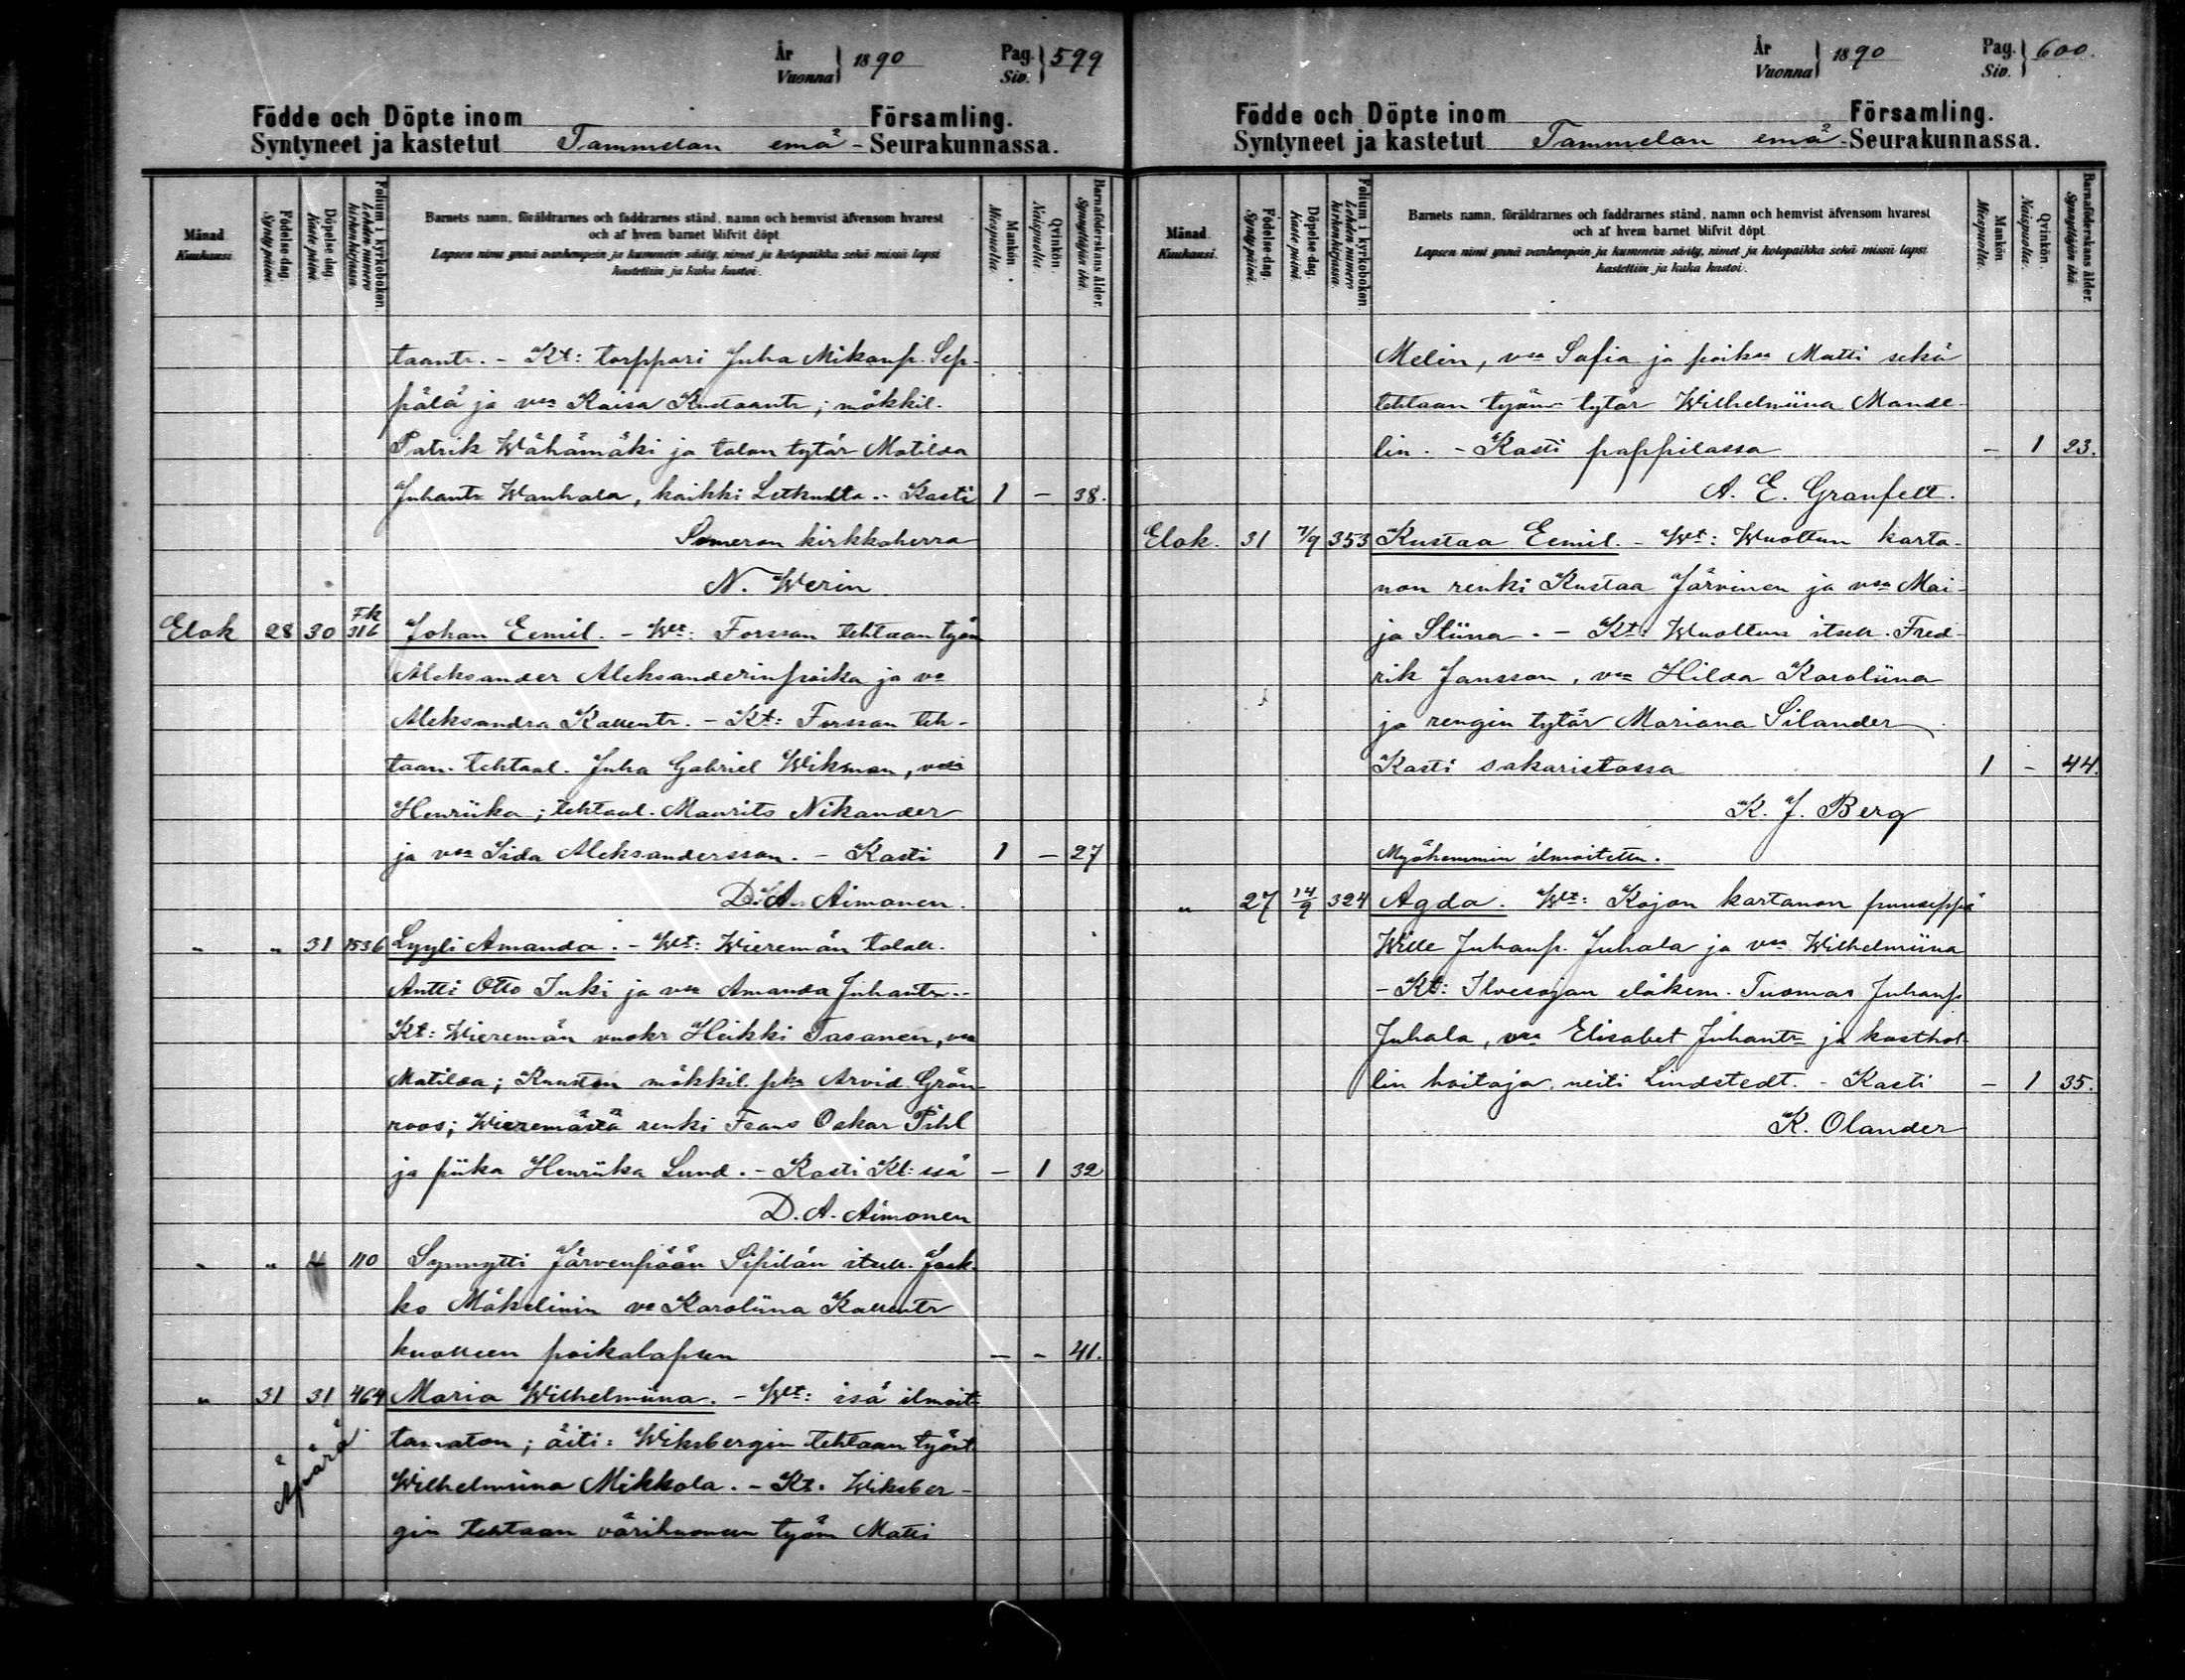 År
Vuonna } 1890
Pag.
Siv. } 599
Födde och Döpte inom Församling.
Syntyneet ja kastetut Tammelan emä - Seurakunnassa.
Månad
Kuukausi.
Födelse-dag.
Syntypäivä.
Döpelse-dag.
Kaste päivä.
Folium i kyrkoboken.
Lehden numero
kirkonkirjassa.
Barnets namn, föräldrarnes och faddrarnes stånd, namn och hemvist äfvensom hvarest
och af hvem barnet blifvit döpt.
Lapsen nimi ynnä vanhempein ja kummein sääty, nimet ja kotopaikka sekä missä lapsi
kastettiin ja kuka kastoi.
Mankön.
Miespuolia.
Qvinkön.
Naispuolia.
Barnaföderskans ålder.
Synnyttäjän ikä.
taantr. - Kt: torppari Juha Mikaup. Sep-
pälä ja vsa Kaisa Kustaantr; mökkil.
Patrik Wähämäki ja talon tytär Matilda
Juhantr Wanhala, kaikki Letkulta. - Kasti 1 - 38.
Someron kirkkoherra
N. Werin
Elok 28 30 Fk 316 Johan Eemil. - Wt: Forssan tehtaan työm
Aleksander Aleksanderinpoika ja vo
Aleksandra Kallentr. - Kt: Forssan teh-
taan tehtaal. Juha Gabriel Wikman, vsa
Henriika; tehtaal. Maurits Nikander
ja vsa Iida Aleksandersson. - Kasti 1 - 27
D. A. Aimonen.
" " 31 1536 Lyyli Amanda. - Wt: Wieremän talall.
Antti Otto Inki ja vsa Amanda Juhantr. -
Kt: Wieremän vuokr Heikki Tasanen, vsa
Matilda; Kuuston mökkil. pka Arvid Grön-
roos; Wieremästä renki Frans Oskar Pihl
ja piika Henriika Lund. - Kasti Kl: ssä - 1 32
D. A. Aimonen
" " 110 Synnytti Järvenpään Sipilän itsell. Jaak-
ko Mäkelinin vo Karoliina Kallentr
kuolleen poikalapsen - - 41.
" 31 31 464 Maria Wilhelmiina. - Wt: isä ilmoit-
Äpärä
tamaton; äiti: Wiksbergin tehtaan työt
Wilhelmiina Mikkola. - Kt. Wiksber-
gin tehtaan värihuoneen työm Matti
År
Vuonna } 1890
Pag.
Siv. } 600.
Födde och Döpte inom Församling.
Syntyneet ja kastetut Tammelan emä - Seurakunnassa.
Månad.
Kuukausi.
Födelse-dag.
Syntypäivä.
Döpelse-dag.
Kaste päivä.
Folium i kyrkoboken.
Lehden numero
kirkonkirjassa.
Barnets namn, föräldrarnes och faddrarnes stånd, namn och hemvist äfvensom hvarest
och af hvem barnet blifvit döpt.
Lapsen nimi ynnä vanhempein ja kummein sääty, nimet ja kotopaikka sekä missä lapsi
kastettiin ja kuka kastoi.
Mankön
Miespuolia.
Qvinkön.
Naispuolia.
Barnaföderskans ålder.
Synnyttäjän ikä.
Melin, vsa Sofia ja poiksa Matti sekä
tehtaan työm tytär Wilhelmiina Mande-
lin. - Kasti pappilassa - 1 23.
A. E. Granfelt.
Elok. 31 7/9 353 Kustaa Eemil. - Wt: Wuoltun karta-
non renki Kustaa Järvinen ja vsa Mai-
ja Stiina. - Kt: Wuoltun itsell. Fred-
rik Jansson, vsa Hilda Karoliina
ja rengin tytär Mariana Silander
Kasti sakaristossa 1 - 44.
K. J. Berg
Myöhemmin ilmoitettu.
" 27 14/9 324 Agda. Wt: Kojon kartanon puuseppä
Wille Juhanp. Juhala ja vsa Wilhelmiina
- Kt: Ilvesojan eläkem. Tuomas Juhanp
Juhala, vsa Elisabet Juhantr ja kasthol-
lin hoitaja neiti Lindstedt. - Kasti - 1 35.
K. Olander